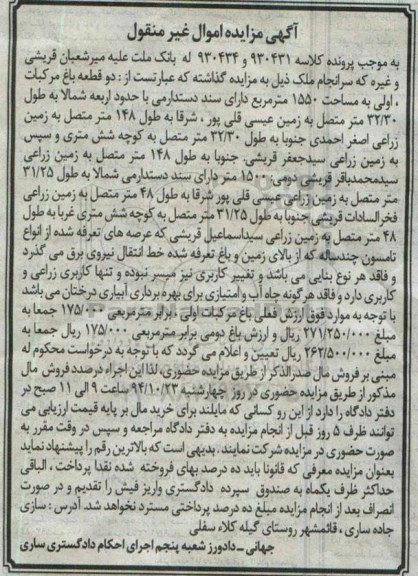 آگهی مزایده اموال غیر منقول
به موجب پرونده کلاسه ۹۳۰۴۳۱ و ۹۳۰۴۳۴ له بانک ملت علیه میرشعبان قریشی
و غیره که سرانجام ملک ذیل به مزایده گذاشته که عبارتست از : دو قطعه باغ مرکبات
، اولی به مساحت ۱۵۵۰ مترمربع دارای سند دستدارمی با حدود اربعه شمالا به طول
۳۲/۳۰ متر متصل به زمین عیسی قلی پور ، شرقا به طول ۱۴۸ متر متصل به زمین
زراعی اصغر احمدی جنوبا به طول ۳۲/۳۰ متر متصل به کوچه شش متری و سپس
به زمین زراعی سیدجعفر قریشی. جنوبا به طول ۱۴۸ متر متصل به زمین زراعی
سیدمحمدباقر قریشی دومی، ۱۵۰۰ متر دارای سند دستدارمی شمالا به طول ۳۱/۲۵
متر متصل به زمین زراعی عیسی قلی پور شرقا به طول ۴۸ متر متصل به زمین زراعی
فخرالسادات قریشی جنوبا به طول ۳۱/۲۵ متر متصل به کوچه شش متری غربا به طول
۴۸ متر متصل به زمین زراعی سیداسماعیل قریشی که عرصه های تعرفه شده از انواع
تامسون چندساله که از بالای زمین و باغ تعرفه شده خط انتقال نیروی برق می گذرد
و فاقد هر نوع بنایی می باشد و تغییر کاربری نیز میسر نبوده و تنها کاربری زراعی و
کاربری دارد و فاقد هرگونه چاه آب و امتیازی برای بهره برداری آبیاری درختان می باشد
با توجه به موارد فوق ارزش فعلی باغ مرکبات اولی ، برابر مترمربعی ۱۷۵/۰۰۰ جمعا به
مبلغ ۲۷۱/۲۵۰/۰۰۰ ریال و ارزش باغ دومی برابر مترمربعی ۱۷۵/۰۰۰ ریال جمعا به
مبلغ ۲۶۲/۵۰۰/۰۰۰ ریال تعیین و اعلام می گردد که با توجه به درخواست محکوم له
مبنی بر فروش مال صدرالذکر از طریق مزایده حضوری، لذا این اجراء درصدد فروش مال
مذکور از طریق مزایده حضوری در روز چهارشنبه ۹۴/۱۰/۲۳ ساعت ۹ الی ۱۱ صبح در
دفتر دادگاه را دارد از این رو کسانی که مایلند برای خرید مال بر پایه قیمت ارزیابی می
توانند ظرف ۵ روز قبل از انجام مزایده به دفتر دادگاه مراجعه و سپس در وقت مقرر به
صورت حضوری در مزایده شرکت نمایند. بدیهی است که بالاترین رقم را پیشنهاد نماید
بعنوان مزایده معرفی که قانونا باید ده درصد بهای فروخته شده نقدا پرداخت ، الباقی
حداکثر ظرف یکماه به صندوق سپرده دادگستری واریز فیش را تقدیم و در صورت
انصراف بعد از انجام مزایده مبلغ ده درصد پرداختی مسترد نخواهد شد. آدرس : ساری
جاده ساری ، قائمشهر روستای گیله کلاء سفلی
جهانی _ دادورز شعبه پنجم اجرای احکام دادگستری ساری